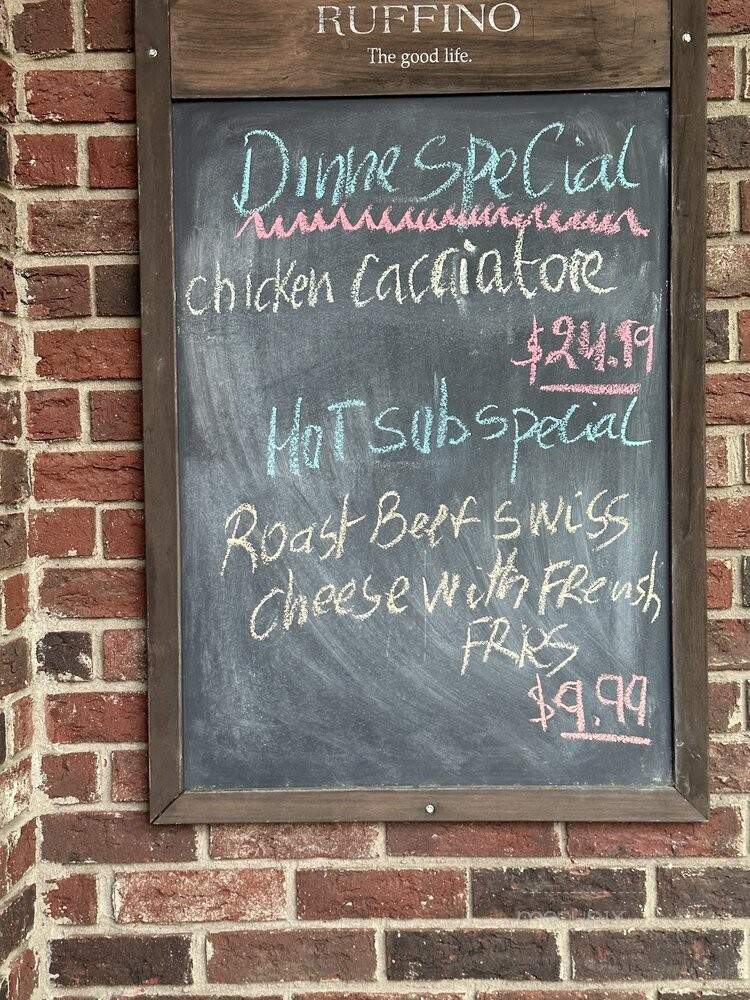 RUFFINO
The good life.
Dinne Special
chicken cacciatore
$24.99
Hot sub special
Roast Beef swiss
cheese with FRensh
FRies
$9.99